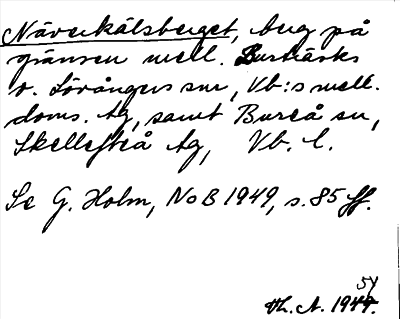 Näverkälsberget, berg på
gränsen mell. Burträsks
o. Lövångers snr, Vb:s mell.
doms. tg, samt Bureå sn,
Skellefteå tg, Vb. l.
Se G. Holm, NoB 1949, s. 85 ff.
54
Th. A. 1949.